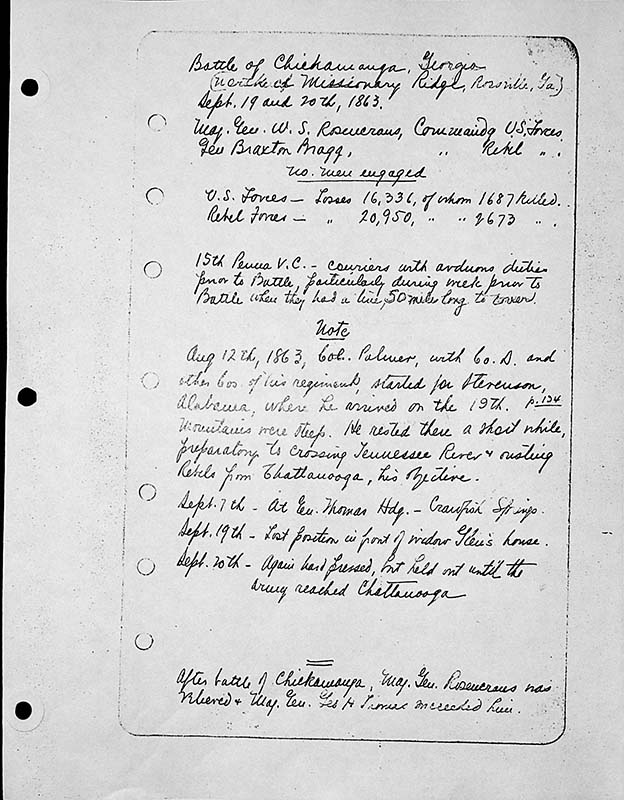 Battle of Chickamauga, Georgia
(north of Missionary Ridge, Rossville, Ga.)
Sept. 19 and 20th, 1863.
Maj. Gen. W. S. Rosencrans, Commandg U.S. Forces
Gen Braxton Bragg, " Rebel " .
No. men engaged
U.S. Forces — Losses 16,336, of whom 1687 Killed.
Rebel Forces — " 20,950, " " 2673 " .
15th Penna V.C. — couriers with arduous duties
prior to Battle, particularly during week prior to
Battle when they had a line, 50 miles long to cover.
Note
Aug 12th, 1863, Col. Palmer, with Co. D. and
other Cos. of his regiment, started for Stevenson,
Alabama, where he arrived on the 19th. p. 134
Mountains were steep. He rested there a short while,
preparatory to crossing Tennessee River & ousting
Rebels from Chattanooga, his objective.
Sept. 7th — At Gen. Thomas Hdq. — Crawfish Springs.
Sept. 19th — Lost position in front of widow Glen's house.
Sept. 20th — Again hard pressed, but held out until the
army reached Chattanooga
After battle of Chickamauga, Maj. Gen. Rosencrans was
relieved & Maj. Gen. Geo H Thomas succeeded him.